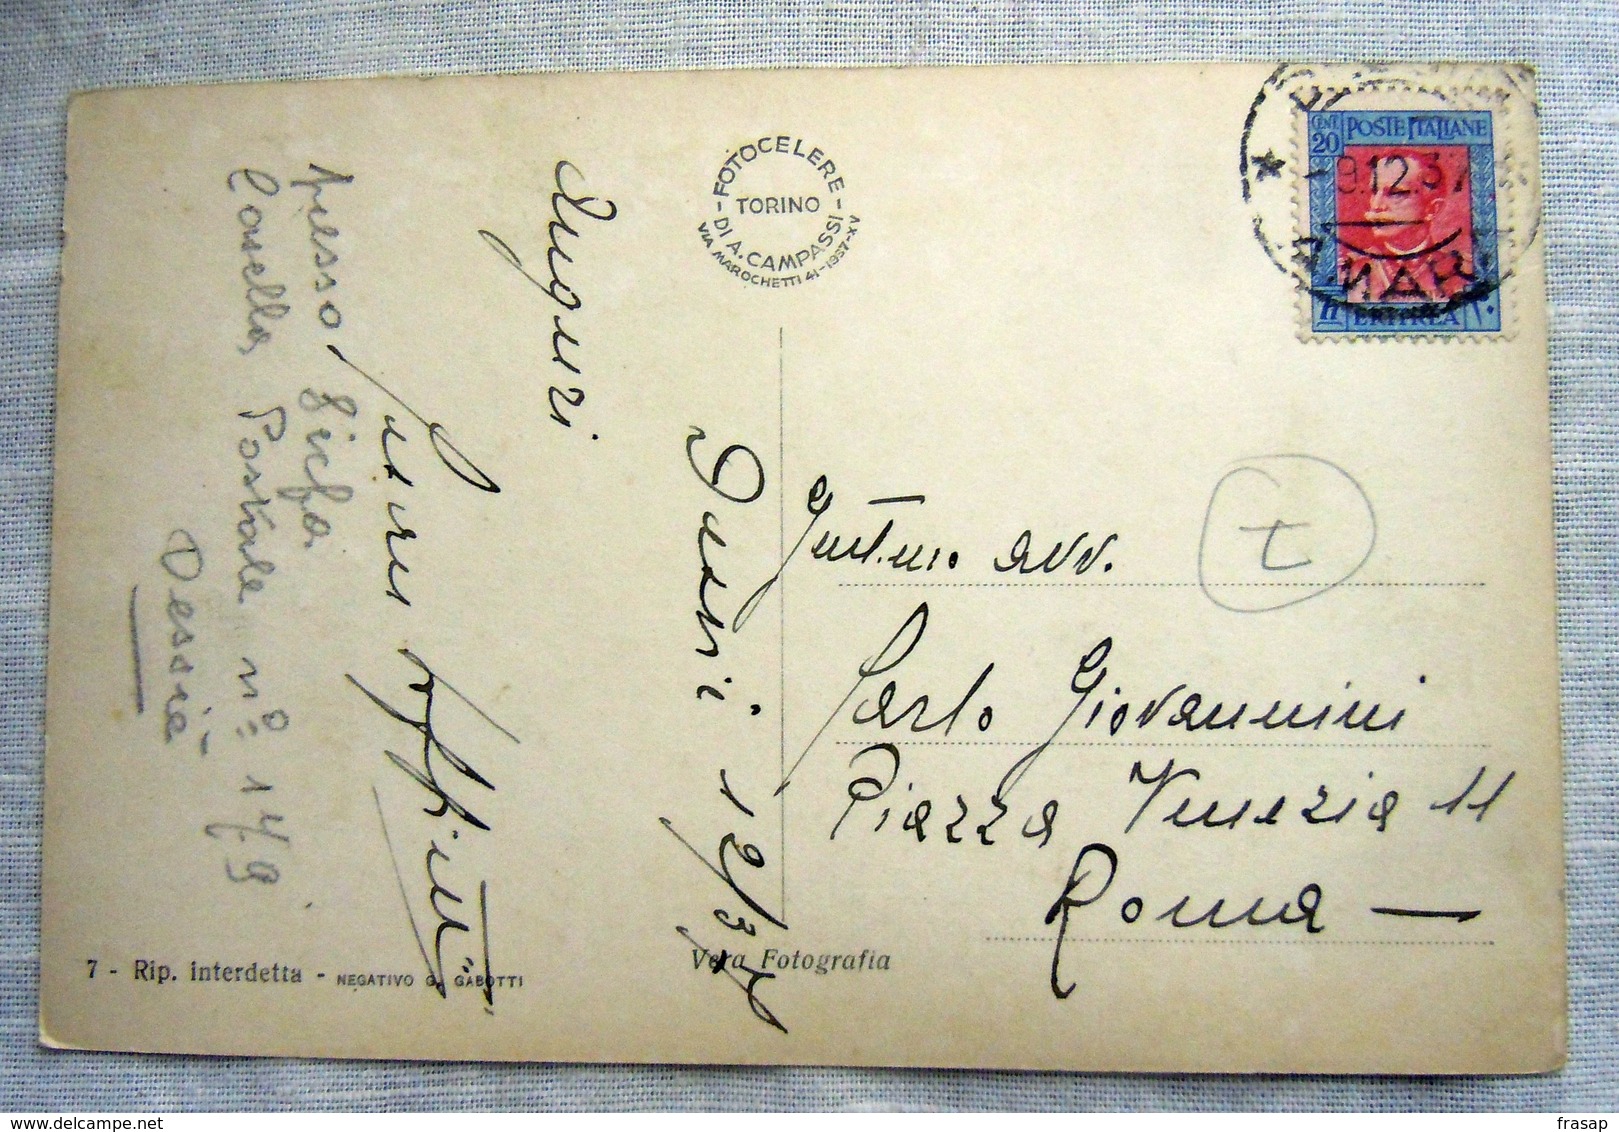 FOTOCELERE
TORINO
DI A. CAMPASSI
VIA MAROCHETTI 41-1937-XV
CENT. 20 POSTE ITALIANE
ERITREA
9.12.37
Auguri
Dessiè 12/37
presso
Casella Postale n° 149
Dessiè
avv.
Carlo Giovannini
Piazza Venezia 11
Roma —
7 - Rip. interdetta - NEGATIVO G. GABOTTI
Vera Fotografia
frasap